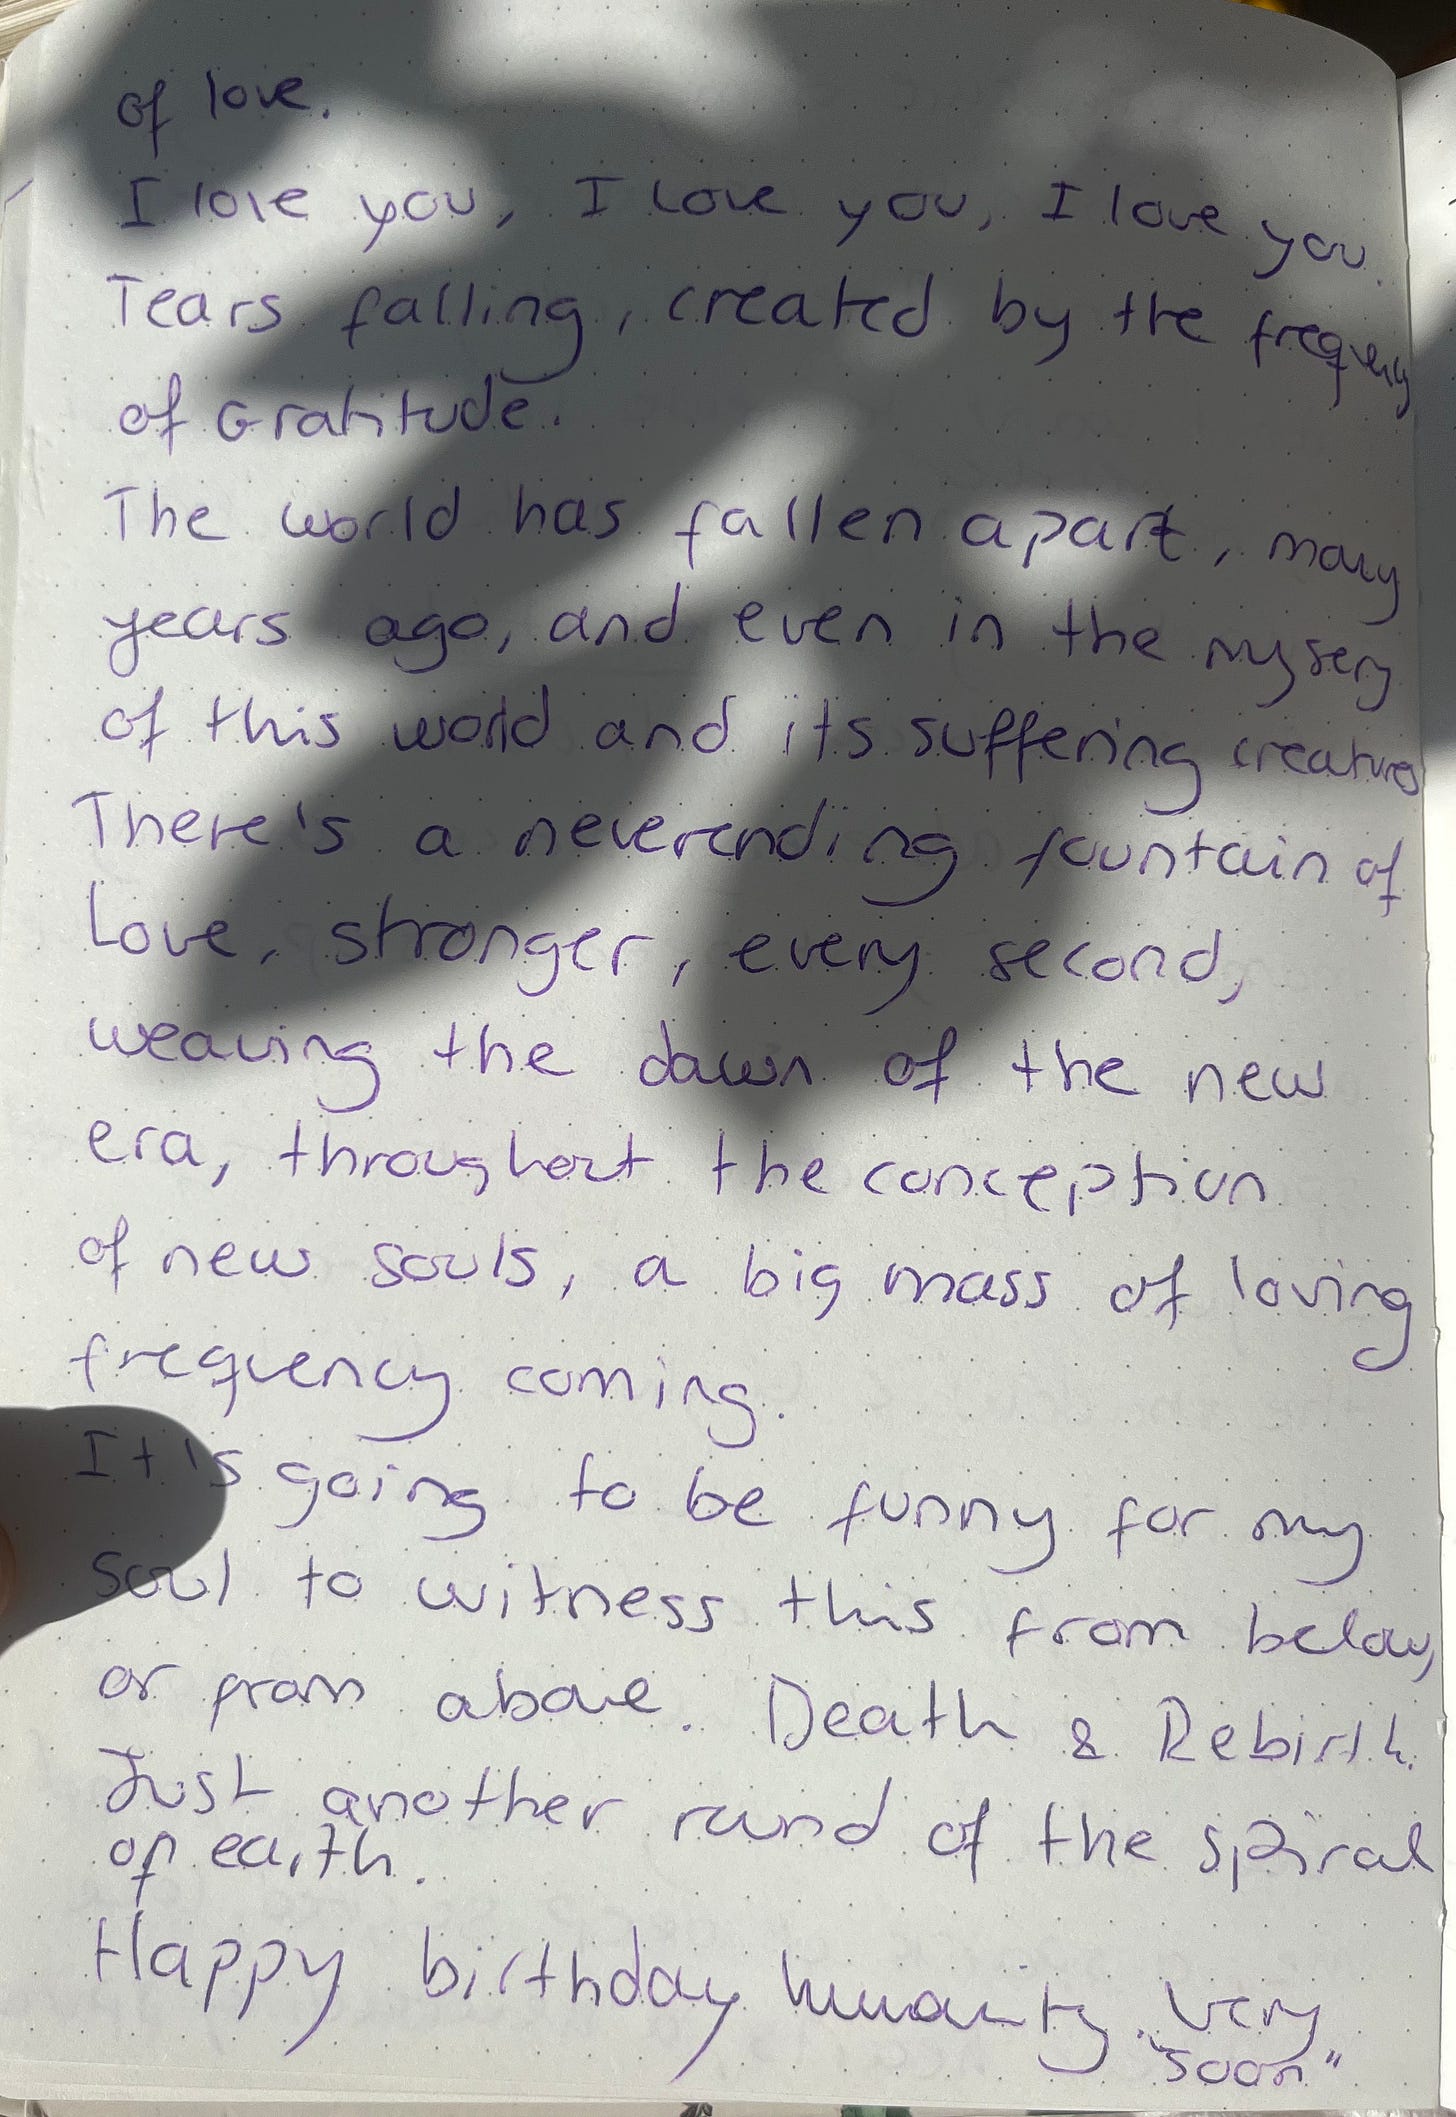 of love.
I love you, I Love you, I love you.
Tears falling, created by the frequency
of Gratitude.
The world has fallen apart, many
years ago, and even in the mysery
of this world and its suffering creatures
There's a neverending fountain of
Love, stronger, every second,
weaving the dawn of the new
era, throughout the conception
of new souls, a big mass of loving
frequency coming.
It's going to be funny for my
soul to witness this from below,
or from above. Death & Rebirth.
Just another round of the spiral
of earth.
Happy birthday humanity. Very
"soon"